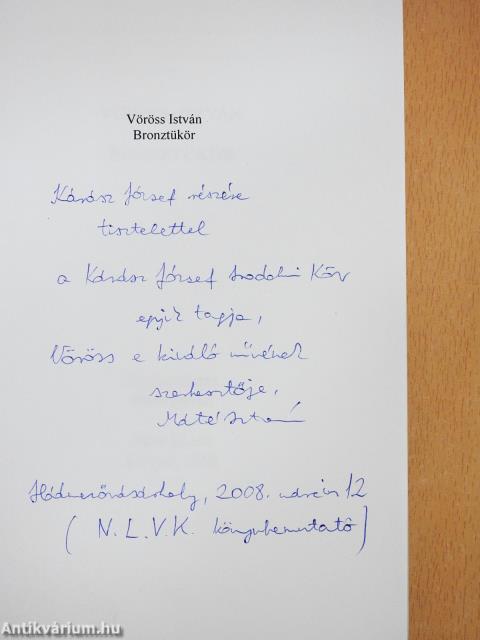 Vöröss István
Bronztükör
Kárász József részére
tisztelettel
a Kárász József Irodalmi Kör
egyik tagja,
Vöröss e kiváló művének
szerkesztője,
Máté István
Hódmezővásárhely, 2008. március 12
( N. L. V. K. könyvbemutató )
Antikvárium.hu